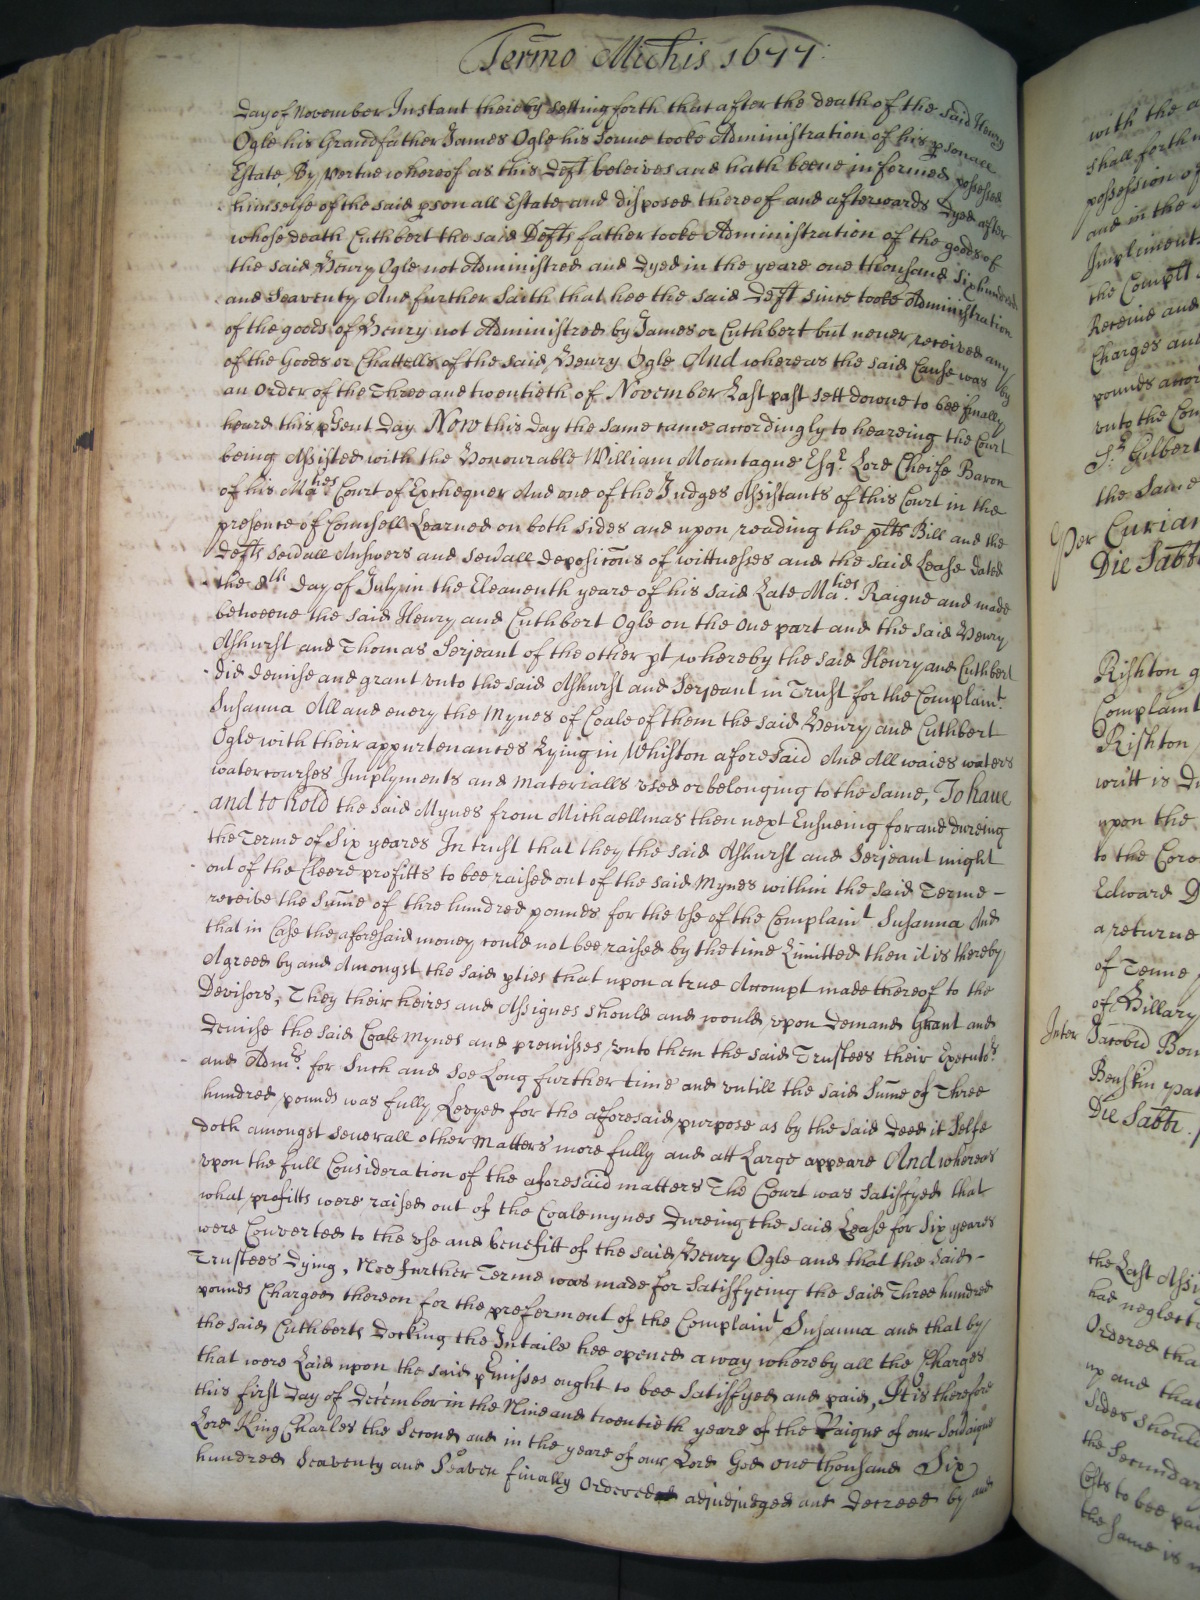 Termo Michis 1677
Day of November Instant thereby setting forth that after the death of the said Henry
Ogle his Grandfather James Ogle his Sonne tooke Administration of his psonall
Estate By vertue whereof as this Deft beleives and hath beene informed possessed
himselfe of the said psonall Estate and disposed thereof and afterwards Dyed after
whose death Cuthbert the said Defts father tooke Administration of the goods of
the said Henry Ogle not Administred and Dyed in the yeare one thousand Six hundred
and Seaventy And further Saith that hee the said Deft since tooke Administration
of the goods of Henry not Administred by James or Cuthbert but never received any
of the Goods or Chattells of the said Henry Ogle And whereas the said Cause was by
an Order of the Three and twentieth of November Last past sett downe to bee finally
heard this psent Day Now this Day the same came accordingly to heareing the Court
being Assisted with the Honourable William Mountague Esqr. Lord Cheife Baron
of his Maties Court of Exchequer And one of the Judges Assistants of this Court in the
presence of Counsell Learned on both sides and upon reading the plts Bill and the
Defts sevall Answers and sevall deposicons of wittnesses and the said Lease dated
the 8th day of July in the Eleaventh yeare of his said Late Maties. Raigne and made
betweene the said Henry and Cuthbert Ogle on the one part and the said Henry
Ashurst and Thomas Serjeant of the other pt whereby the said Henry and Cuthbert
did demise and grant unto the said Ashurst and Serjeant in Trust for the Complaint.
Susanna All and every the Mynes of Coale of them the said Henry and Cuthbert
Ogle with their appurtenances Lying in Whiston aforesaid And All waies waters
watercourses Implyments and Materialls used or belonging to the same, To have
and to hold the said Mynes from Michaellmas then next Ensueing for and dureing
the Terme of Six yeares In trust that they the said Ashurst and Serjeant might
out of the Cleere profitts to bee raised out of the said Mynes within the said Terme -
receive the Sume of thre hundred pounds for the Use of the Complaint Susanna And
that in Case the aforesaid money could not bee raised by the time Limitted then it is thereby
Agreed by and Amongst the said pties that upon a true Accompt made thereof to the
Devisors, They their heires and Assignes should and would upon Demand Grant and
Demise the said Coale Mynes and premisses unto them the said Trustees their Executors
and Admrs. for Such and soe Long further time and untill the said Sume of Three
hundred pounds was fully Levyed for the aforesaid purpose as by the said Deed it Selfe
doth amongst severall other Matters more fully and att Large appeare And whereas
upon the full Consideration of the aforesaid matters The Court was satisfyed that
what profitts were raised out of the Coalemynes Dureing the said Lease for Six yeares
were Converted to the Use and benefitt of the said Henry Ogle and that the said -
Trustees Dying, Noe further Terme was made for satisfyeing the said Three hundred
pounds Charged thereon for the preferment of the Complaint Susanna and that by
the said Cuthberts Docking the Intaile hee opened a way whereby all the Charges
that were Laid upon the said pmisses ought to bee satisfyed and paid, It is therefore
this first Day of December in the Nine and twentieth yeare of the Raigne of our Soveraigne
Lord King Charles the Second and in the yeare of our Lord God one thousand Six
hundred Seaventy and Seaven finally Ordered adjudjudged and decreed by and
with the
shall forth
possession of
and in the
Implyments
the Complt
Receive and
Charges and
pounds
unto the
Sr. Gilbert
the Same
Per Curiam
Die Sabti
Rishton
Complaint
Rishton
writt is
upon the
to the
Edward
a returne
of Tenne
of Hillary
Inter Jacobu
Benskin
Die Sabti
the Last
had neglect
Ordered tha
up and that
sides should
the Secondar
Costs to bee
the same is